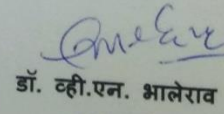 डॉ. व्ही.एन. भालेराव